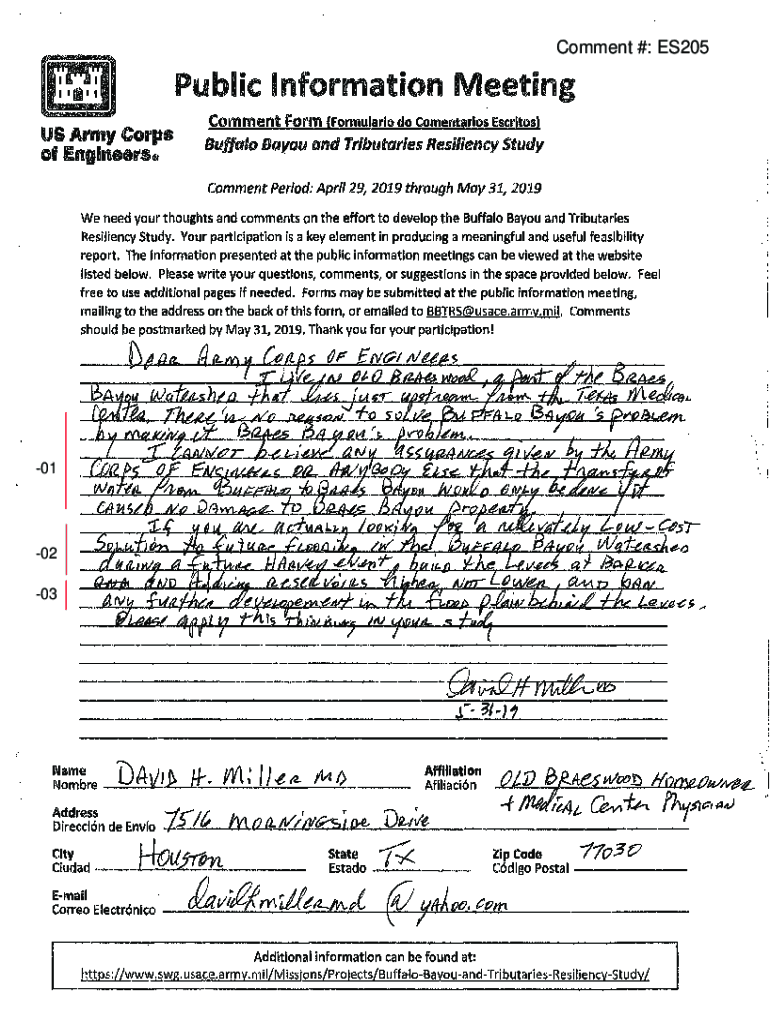 Comment #: ES205
Public Information Meeting
US Army Corps
of Engineers®
Comment Form (Formulario do Comentarios Escritos)
Buffalo Bayou and Tributaries Resiliency Study
Comment Period: April 29, 2019 through May 31, 2019
We need your thoughts and comments on the effort to develop the Buffalo Bayou and Tributaries
Resiliency Study. Your participation is a key element in producing a meaningful and useful feasibility
report. The information presented at the public information meetings can be viewed at the website
listed below. Please write your questions, comments, or suggestions in the space provided below. Feel
free to use additional pages if needed. Forms may be submitted at the public information meeting,
mailing to the address on the back of this form, or emailed to BBTRS@usace.army.mil. Comments
should be postmarked by May 31, 2019. Thank you for your participation!
Dear Army Corps of Engineers
I live in Old Braeswood, a part of the Braes
Bayou Watershed that lies just upstream from the Texas Medical
Center. There is no reason to solve Buffalo Bayou's problem
by making it Braes Bayou's problem.
I cannot believe any assurances given by the Army
-01
Corps of Engineers or anybody else that the transfer of
water from Buffalo to Braes Bayou would only be done if it
caused no damage to Braes Bayou property.
If you are actually looking for a relatively low-cost
-02
solution to future flooding in the Buffalo Bayou Watershed
during a future Harvey event, build the levees at Barker
-03
and Holding reservoirs higher, not lower, and ban
any further developement in the flood plain behind the levees.
Please apply this thinking in your study
David H Miller MD
5-31-19
Name
Nombre
David H. Miller MD
Affiliation
Afiliación
Old Braeswood Homeowner
+ Medical Center Physician
Address
Dirección de Envío
7516 Morningside Drive
City
Ciudad
Houston
State
Estado
TX
Zip Code
Código Postal
77030
E-mail
Correo Electrónico
davidhmillermd@yahoo.com
Additional information can be found at:
https://www.swg.usace.army.mil/Missions/Projects/Buffalo-Bayou-and-Tributaries-Resiliency-Study/